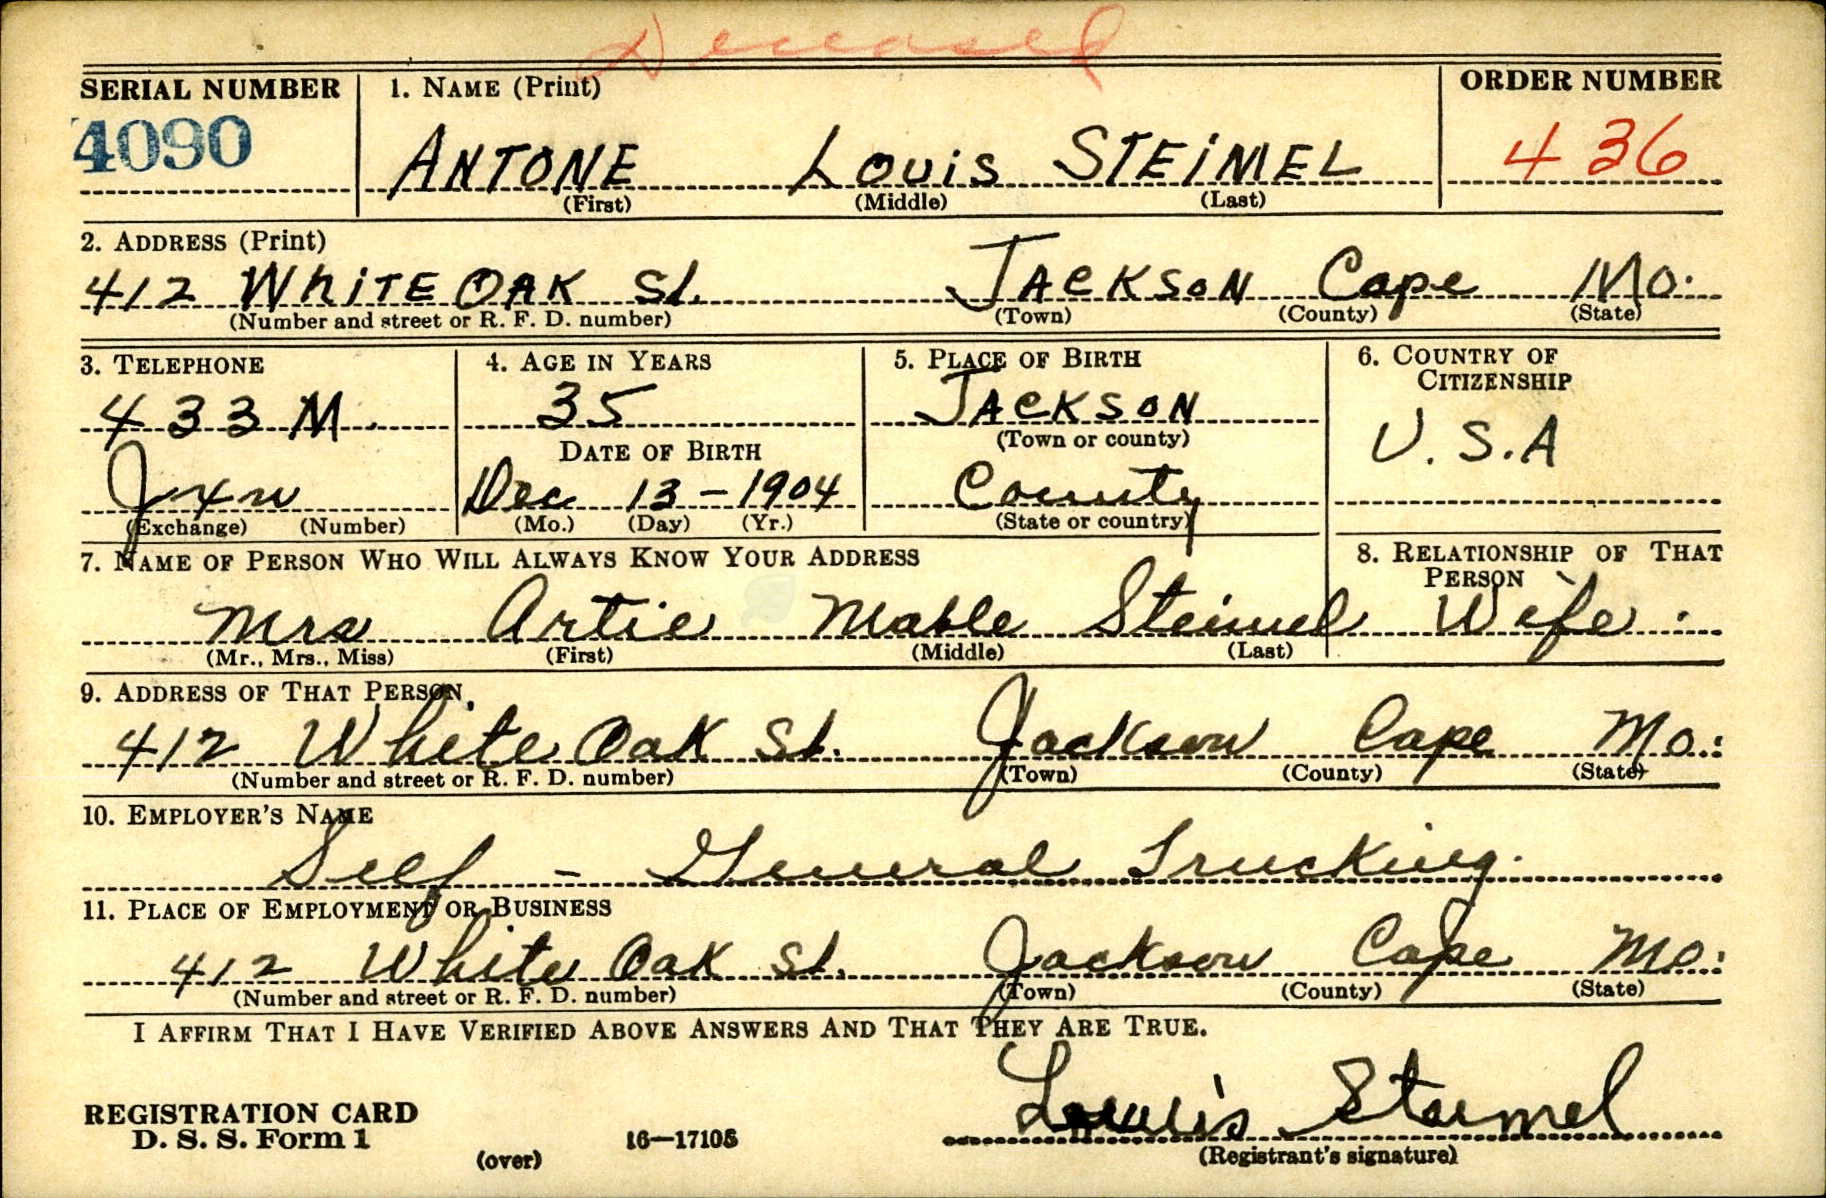 Deceased
SERIAL NUMBER 1. NAME (Print) ORDER NUMBER
4090 ANTONE LOUIS STEIMEL 436
(First) (Middle) (Last)
2. ADDRESS (Print)
412 WHITE OAK St. JACKSON Cape Mo.
(Number and street or R. F. D. number) (Town) (County) (State)
3. TELEPHONE 4. AGE IN YEARS 5. PLACE OF BIRTH 6. COUNTRY OF CITIZENSHIP
433M. 35 JACKSON U.S.A
DATE OF BIRTH (Town or county)
Jxn Dec 13-1904 County
(Exchange) (Number) (Mo.) (Day) (Yr.) (State or country)
7. NAME OF PERSON WHO WILL ALWAYS KNOW YOUR ADDRESS 8. RELATIONSHIP OF THAT PERSON
Mrs Artie Mable Steimel Wife.
(Mr., Mrs., Miss) (First) (Middle) (Last)
9. ADDRESS OF THAT PERSON
412 White Oak St. Jackson Cape Mo.
(Number and street or R. F. D. number) (Town) (County) (State)
10. EMPLOYER'S NAME
Self - General Trucking.
11. PLACE OF EMPLOYMENT OR BUSINESS
412 White Oak St. Jackson Cape Mo.
(Number and street or R. F. D. number) (Town) (County) (State)
I AFFIRM THAT I HAVE VERIFIED ABOVE ANSWERS AND THAT THEY ARE TRUE.
Louis Steimel
REGISTRATION CARD
D. S. S. Form 1 16—17105
(over) (Registrant's signature)